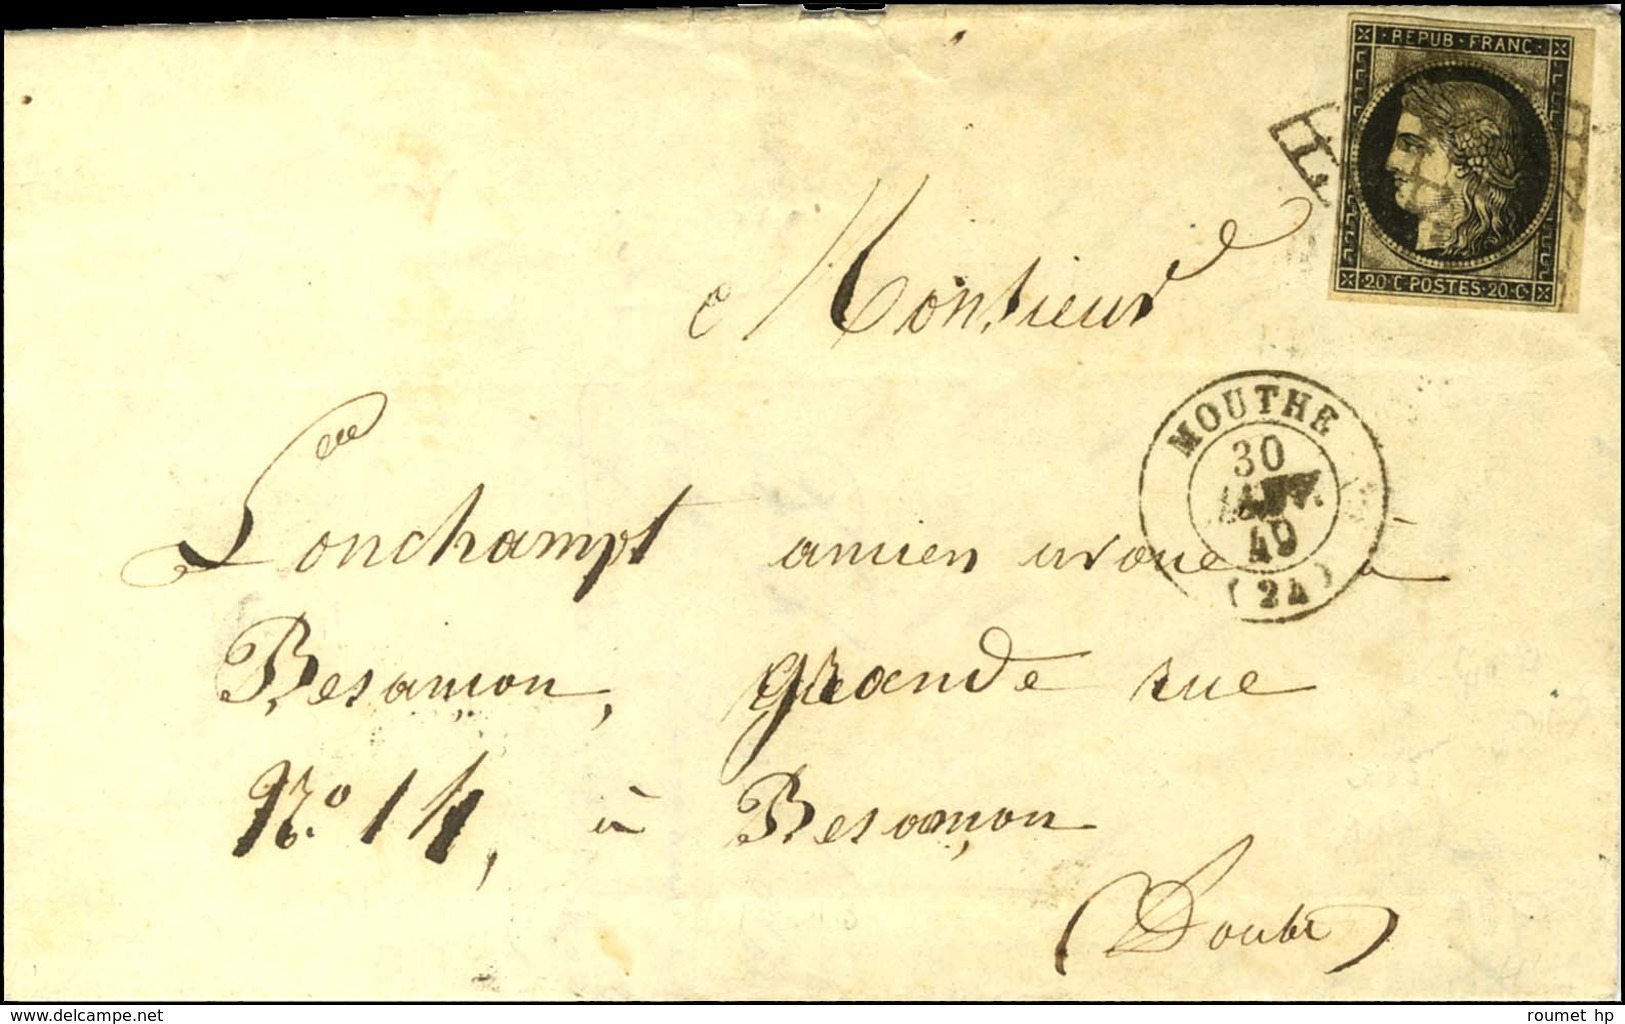 REPUB·FRANC·
20·C·POSTES·20·C·
Monsieur
MOUTHE
30
JANV.
49
(24)
Lonchampt ancien avoué à
Besançon, grande rue
N.º 14, à Besançon
(Doubs)
www.delcampe.net
roumet_hp